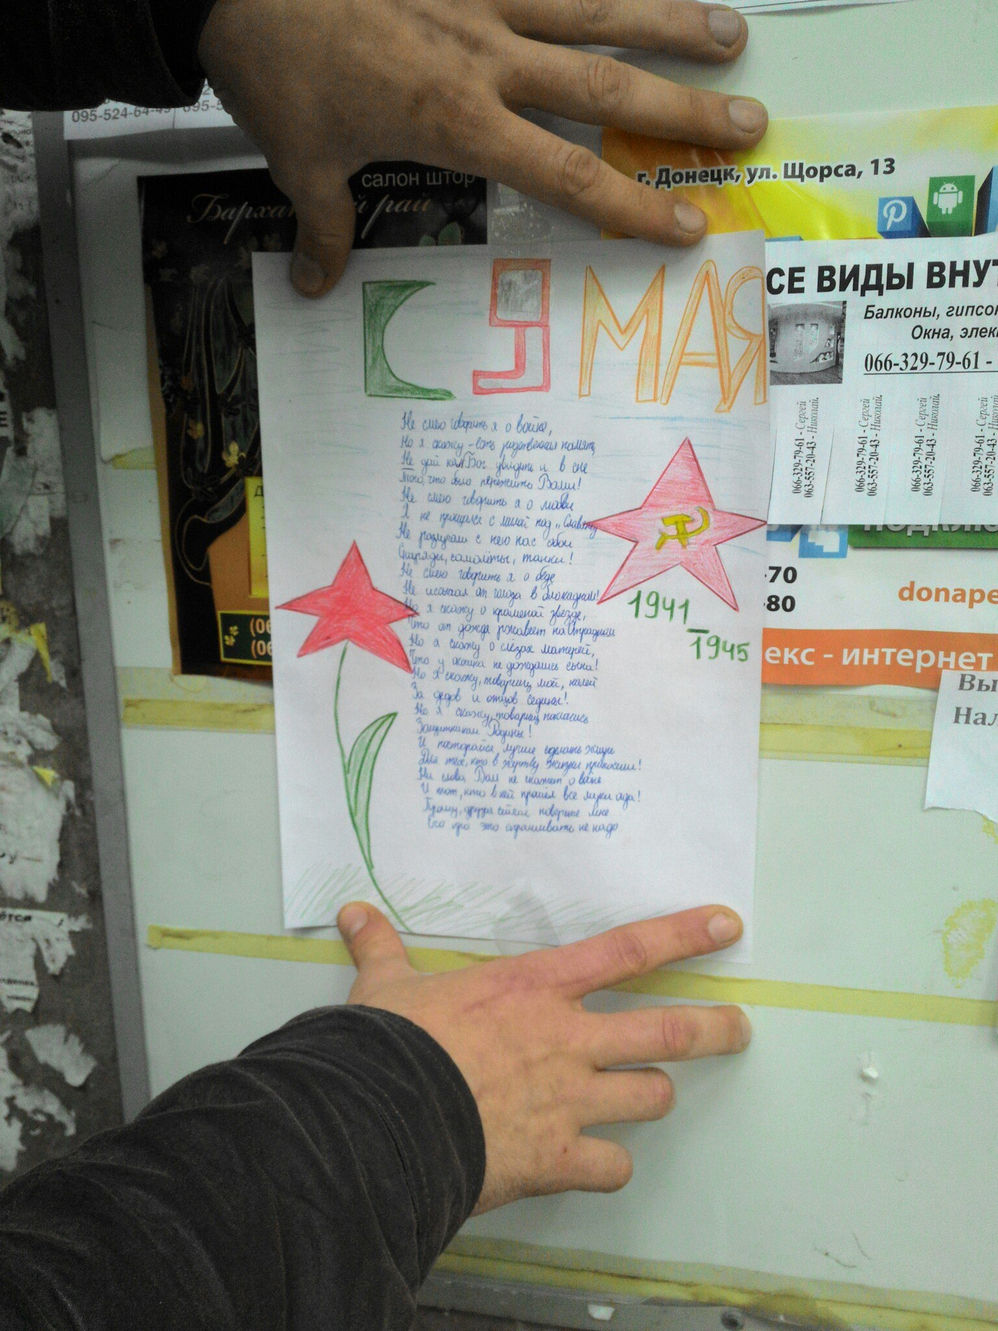 095-524-64-49
095-5
салон штор
Бархатный рай
г. Донецк, ул. Щорса, 13
С 9 МАЯ
Не смею говорить я о войне,
Но я скажу - есть родственная память
Не дай нам Бог увидеть и в сне
Того, что было пережить Вами!
Не смею говорить я о
Я не прощался с мамой под „Славянку
Не разлучали с нею нас собой
Снаряды, самолёты, танки!
Не смею говорить я о беде
Не испытал от голода в блокадном!
Но я скажу о краменой звезде,
Что от дождя ржавеет на ограднем
Но я скажу о слёзах матерей,
Что у окошка не дождались сына!
Но я скажу, товарищ мой, налей
За дедов и отцов седины!
Но я скажу, товарищ поклонись
Защитникам Родины!
И постарайся лучше сделать жизнь
Для тех, кто в жертву жизни приносили!
Ни слова Вам не скажет о войне
И тот, кто в ней прошёл все муки ада!
Прошу, друзья сейчас поверьте мне
Его про это спрашивать не надо
1941
– 1945
СЕ ВИДЫ ВНУТ
Балконы, гипсо
Окна, элек
066-329-79-61 -
066-329-79-61 - Сергей
063-557-20-43 - Николай.
066-329-79-61 - Сергей
063-557-20-43 - Николай.
066-329-79-61 - Сергей
063-557-20-43 - Николай.
066-329-79-61
063-557-20-43
ПОДКЛЮ
-70
-80
donape
екс - интернет
Вы
Нал
(06
(06